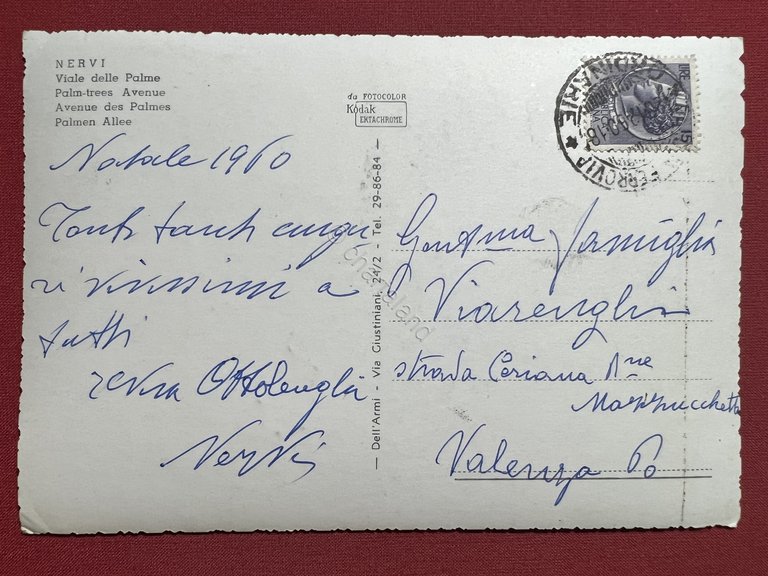 NERVI
Viale delle Palme
Palm-trees Avenue
Avenue des Palmes
Palmen Allee
da FOTOCOLOR
Kodak
EKTACHROME
Natale 1960
Tanti tanti augu
ri vivissimi a
tutti
Ottolenghi
Nervi
— Dell'Armi - Via Giustiniani, 24/2 - Tel. 29-86-84 —
Gent.ma famiglia
Viarenghi
strada Ceriana
Valenza Po
ORDINARIE
FERROVIA
LIRE 15